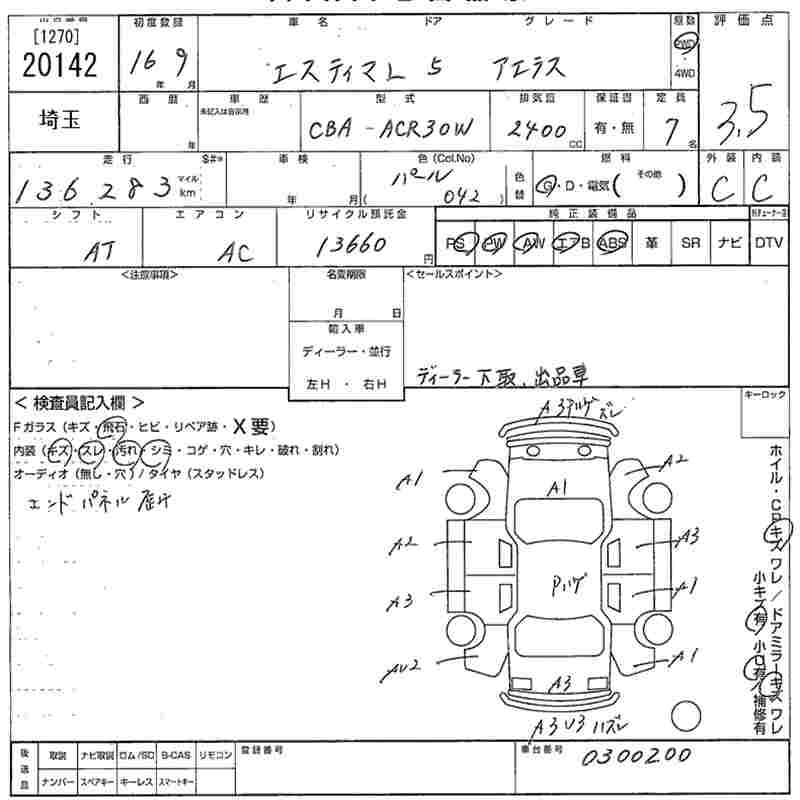 [1270]
20142
初度登録
車名 ドア グレード
駆動
評価点
16 9
年 月
エスティマL 5 アエラス
2WD
4WD
3.5
埼玉
西暦
年
車歴
未記入は自家用
型式
CBA-ACR30W
排気量
2400 CC
保証書
有・無
定員
7 名
走行
136,283
マイル
km
車検
年 月
色 (Col.No)
パール
( 042 )
色替
燃料
G・D・電気( その他 )
外装
C
内装
C
シフト
AT
エアコン
AC
リサイクル預託金
13660 円
純正装備品
PS PW AW エアB ABS 革 SR ナビ DTV
<注意事項>
名変期限
月 日
輸入車
ディーラー・並行
左H ・ 右H
<セールスポイント>
ディーラー下取、出品車
キーロック
< 検査員記入欄 >
Fガラス (キズ・飛石・ヒビ・リペア跡・X要)
内装 (キズ・スレ・汚れ・シミ・コゲ・穴・キレ・破れ・割れ)
オーディオ (無し・穴) / タイヤ (スタッドレス)
エンドパネル
A3 ハゲ ズレ
A1
A2
A1
A2
A3
Pハゲ
A3
A1
AU2
A1
A3
A3U3 ハズレ
ホイル・CPキズワレ / ドアミラーキズワレ
小キズ有 / 小凹有 / 補修有
後送品
取説 ナビ取説 ロム/SC B-CAS リモコン
ナンバー スペアキー キーレス スマートキー
登録番号
車台番号
0300200